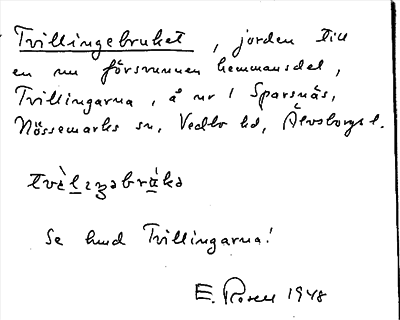 Tvillingebruket, jorden till
en nu försvunnen hemmansdel,
Tvillingarna, å nr 1 Sparsnäs,
Nössemarks sn, Vedbo hd, Älvsborgs l.
tvèlıŋəbrʉ́kə
Se kund Tvillingarna!
E. Rosell 1948